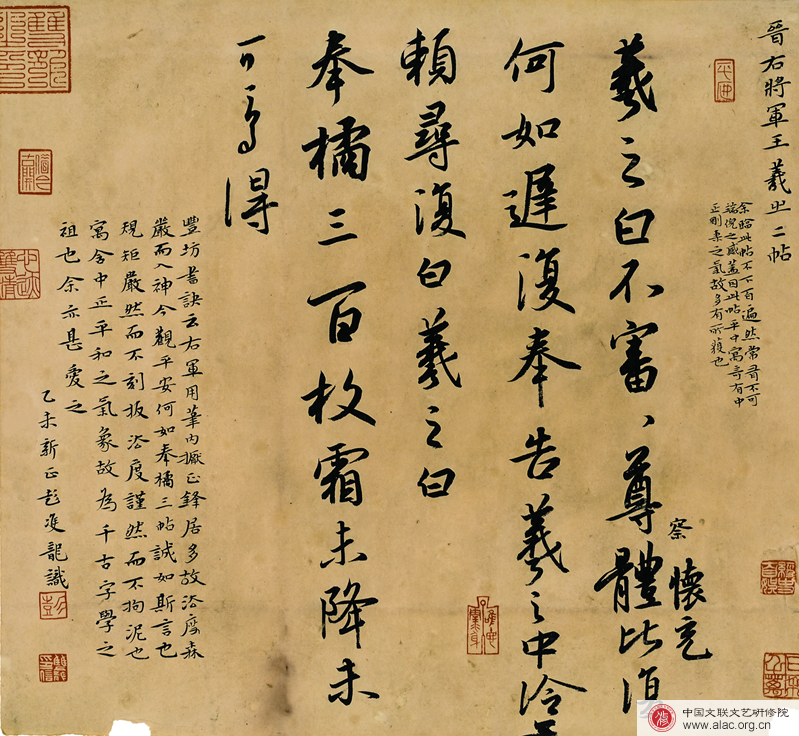 晉右將軍王羲之二帖
余臨此帖不下百遍然常有不可
端倪之感蓋因此帖平中寓奇有中
正剛柔之氣故多有所獲也
羲之白不審、尊體比復
察
懷充
何如遲復奉告羲之中冷無
賴尋復白羲之白
奉橘三百枚霜未降未
可多得
豐坊書訣云右軍用筆內擫正鋒居多故法度森
嚴而入神今觀平安何如奉橘三帖誠如斯言也
規矩嚴然而不刻板法度謹然而不拘泥也
寓含中正平和之氣象故為千古字學之
祖也余亦甚愛之
乙未新正彭雙龍識
中国文联文艺研修院
www.alac.org.cn